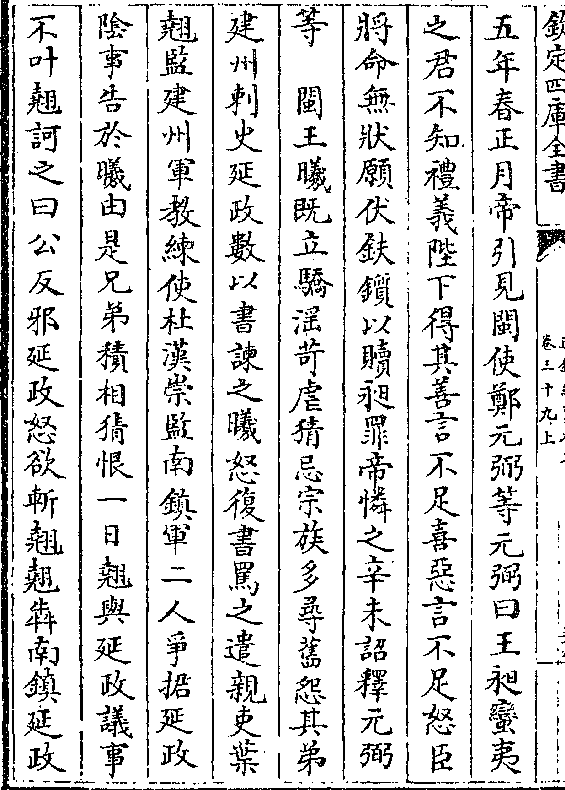 欽定四庫全書
卷三十九上
五年春正月帝引見閩使鄭元弼等元弼曰王昶蠻夷
之君不知禮義陛下得其善言不足喜惡言不足怒臣
將命無狀願伏鈇鑕以贖昶罪帝憐之辛未詔釋元弼
等　閩王曦既立驕淫苛虐猜忌宗族多尋舊怨其弟
建州刺史延政數以書諫之曦怒復書罵之遣親吏葉
翹監建州軍教練使杜漢崇監南鎮軍二人爭捃延政
陰事告於曦由是兄弟積相猜恨一日翹與延政議事
不叶翹訶之曰公反邪延政怒欲斬翹翹犇南鎮延政